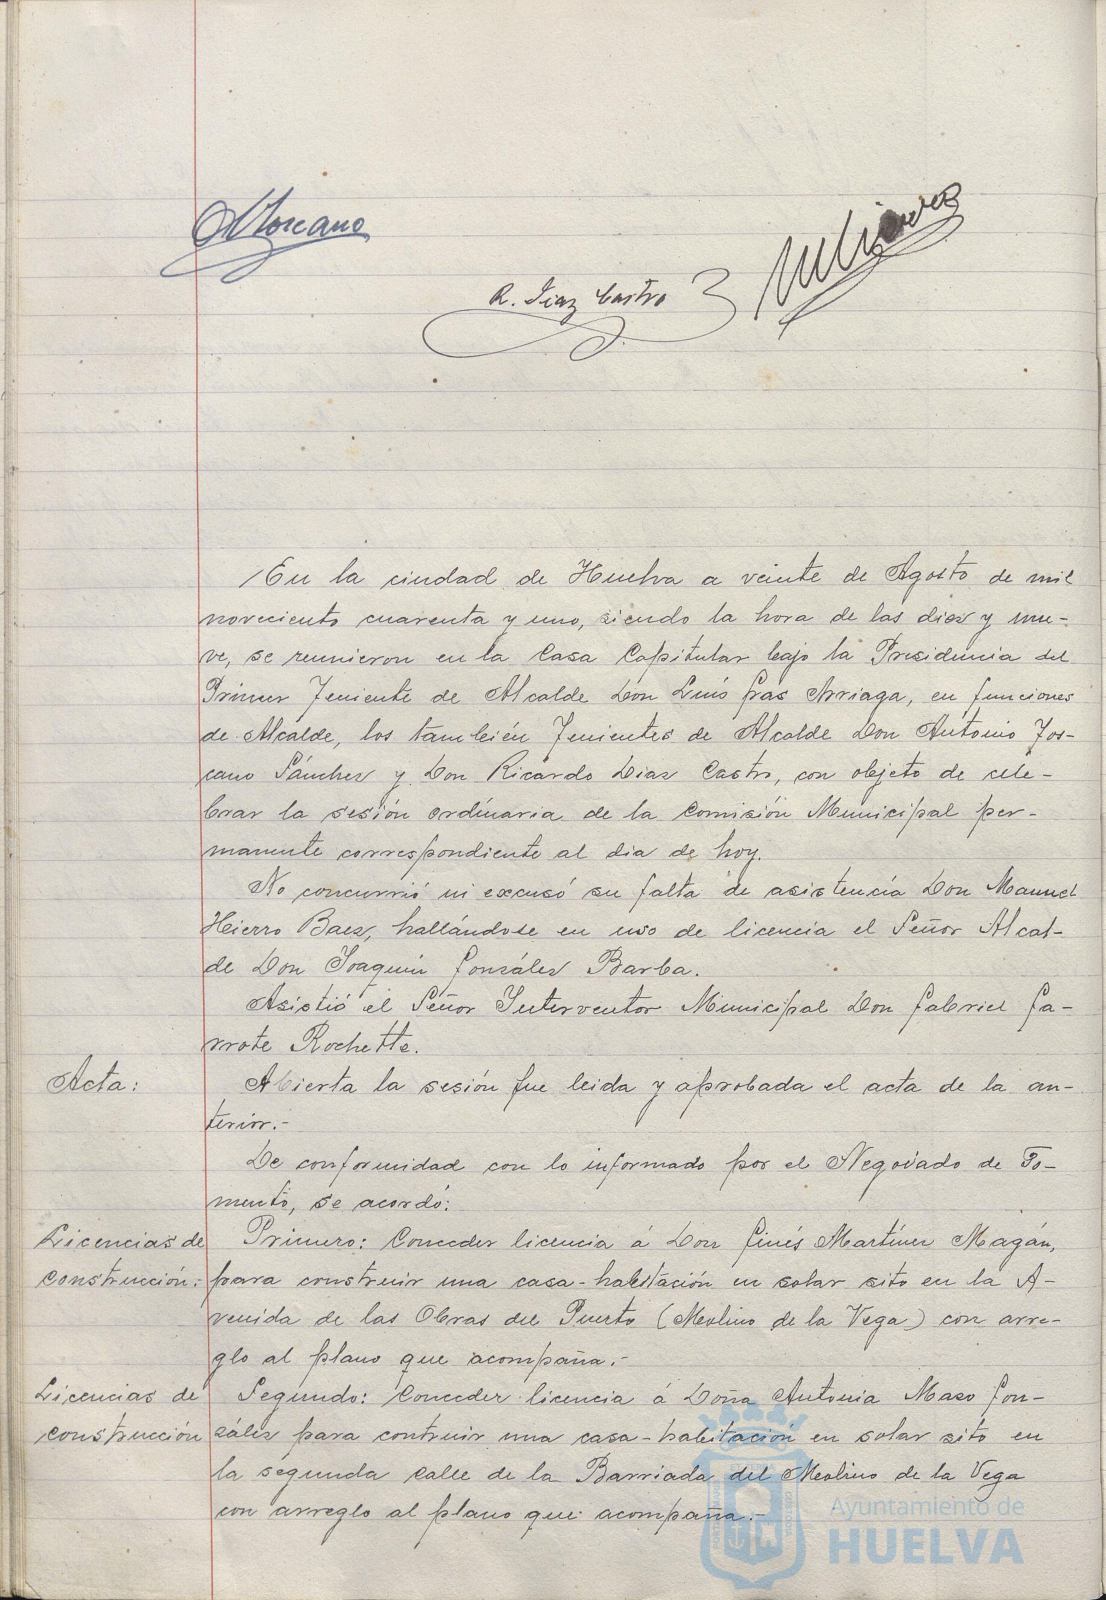 Toscano
R. Diaz Castro
En la ciudad de Huelva a veinte de Agosto de mil
noveciento cuarenta y uno, siendo la hora de las diez y nue-
ve, se reunieron en la Casa Capitular bajo la Presidencia del
Primer Teniente de Alcalde Don Luís Gras Arriaga, en funciones
de Alcalde, los también Tenientes de Alcalde Don António Tos-
cano Sánchez y Don Ricardo Diaz Castro, con objeto de cele-
brar la sesión ordinaria de la Comisión Municipal per-
manente correspondiente al dia de hoy.
No concurrió ni excusó su falta de asistencia Don Manuel
Hierro Baez, hallándose en uso de licencia el Señor Alcal-
de Don Joaquín González Barba.
Asistió el Señor Interventor Municipal Don Gabriel Ga-
rrote Rochette.
Acta:
Abierta la sesión fue leida y aprobada el acta de la an-
terior.-
De conformidad con lo informado por el Negociado de Fo-
mento, se acordó:
Licencias de
construcción:
Primero: Conceder licencia á Don Ginés Martínez Magán,
para construir una casa-habitación en solar sito en la A-
venida de las Obras del Puerto (Molino de la Vega) con arre-
glo al plano que acompaña.-
Licencias de
construcción
Segundo: Conceder licencia á Doña Antonia Mazo Gon-
zález para contruir una casa-habitación en solar sito en
la segunda calle de la Barriada del Molino de la Vega
con arreglo al plano que acompaña.-
Ayuntamiento de
HUELVA